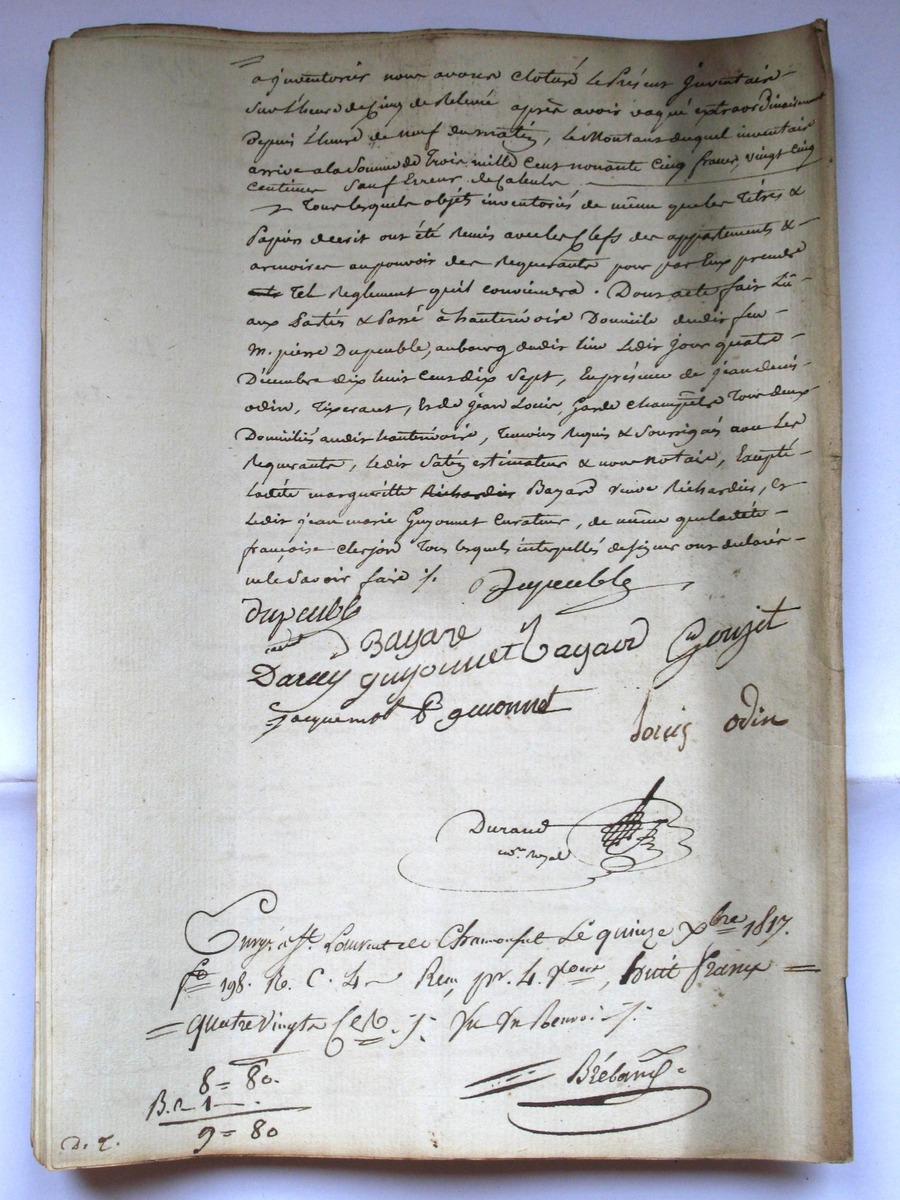 a jnventorier nous avons cloturé le Présent jnventaire
Sur l'heure de Cinq de Relevée après avoir vaqué extraordinairement
Depuis l'heure de neuf du matin, le Montant duquel inventaire
arrive a la Somme de Trois mille cent nonante Cinq francs vingt Cinq
Centimes Sauf Erreur de Calculs
Tous lesquels objets inventoriés de même que les Titres &
Papiers decrit ont été Remis avec les Clefs des appartements &
armoires au pouvoir des Requerants pour par Eux prendre
Tel Reglement qu'il conviendra. Dont acte fait Lû
aux Parties & Passé à hauterivoire Domicile dudit feu
M. pierre Dupeuble, au bourg dudit lieu Ledit jour quatre
Décembre dix huit Cent dix Sept, En présence de jean
odin, Tisserant, Et de jean Louis Garde Champêtre Tous deux
Domiciliés audit hauterivoire, Temoins Requis & Soussignés avec Les
Requerants, Ledit estimateur & nous Notaire, Excepté
Ladite margueritte Richardier Bayard veuve Richardier, Et
Ledit jean marie Guyonnet Curateur, de même que ladite
françoise Clerjon Tous lesquels interpellés de signer ont declaré
ne le Savoir faire ./.
Dupeuble
dupeuble
Bayard
Guyonnet Bayard Goujet
jacquemot guionnet
Louis odin
Durand
not. royal
Enregé à St. Laurent de Chamousset Le quinze Xbre 1817.
fo 198. R. C. 4 Reçu, pr. 4 , huit francs
quatre vingts Ces ./. Un Renvoi ./.
8 = 80.
Brébant
9 = 80
D. 7.